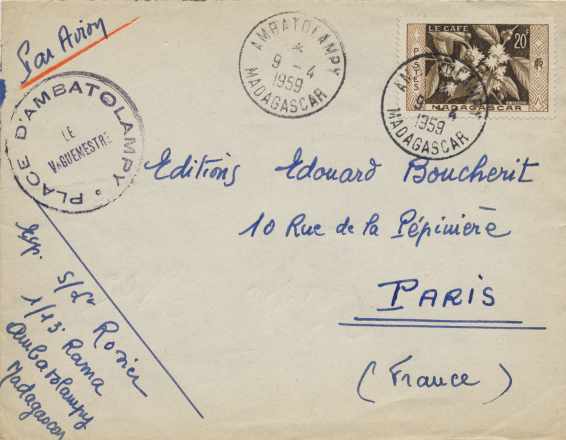 Par Avion
AMBATOLAMPY
9 - 4
1959
MADAGASCAR
LE CAFÉ
20F
POSTES
MADAGASCAR
9 4
1959
MADAGASCAR
PLACE D'AMBATOLAMPY
LE
VAGUEMESTRE
Editions Edouard Boucherit
10 Rue de la Pépinière
PARIS
(France)
Exp. S/Lt Rosier
1/13e Rama
Ambatolampy
Madagascar